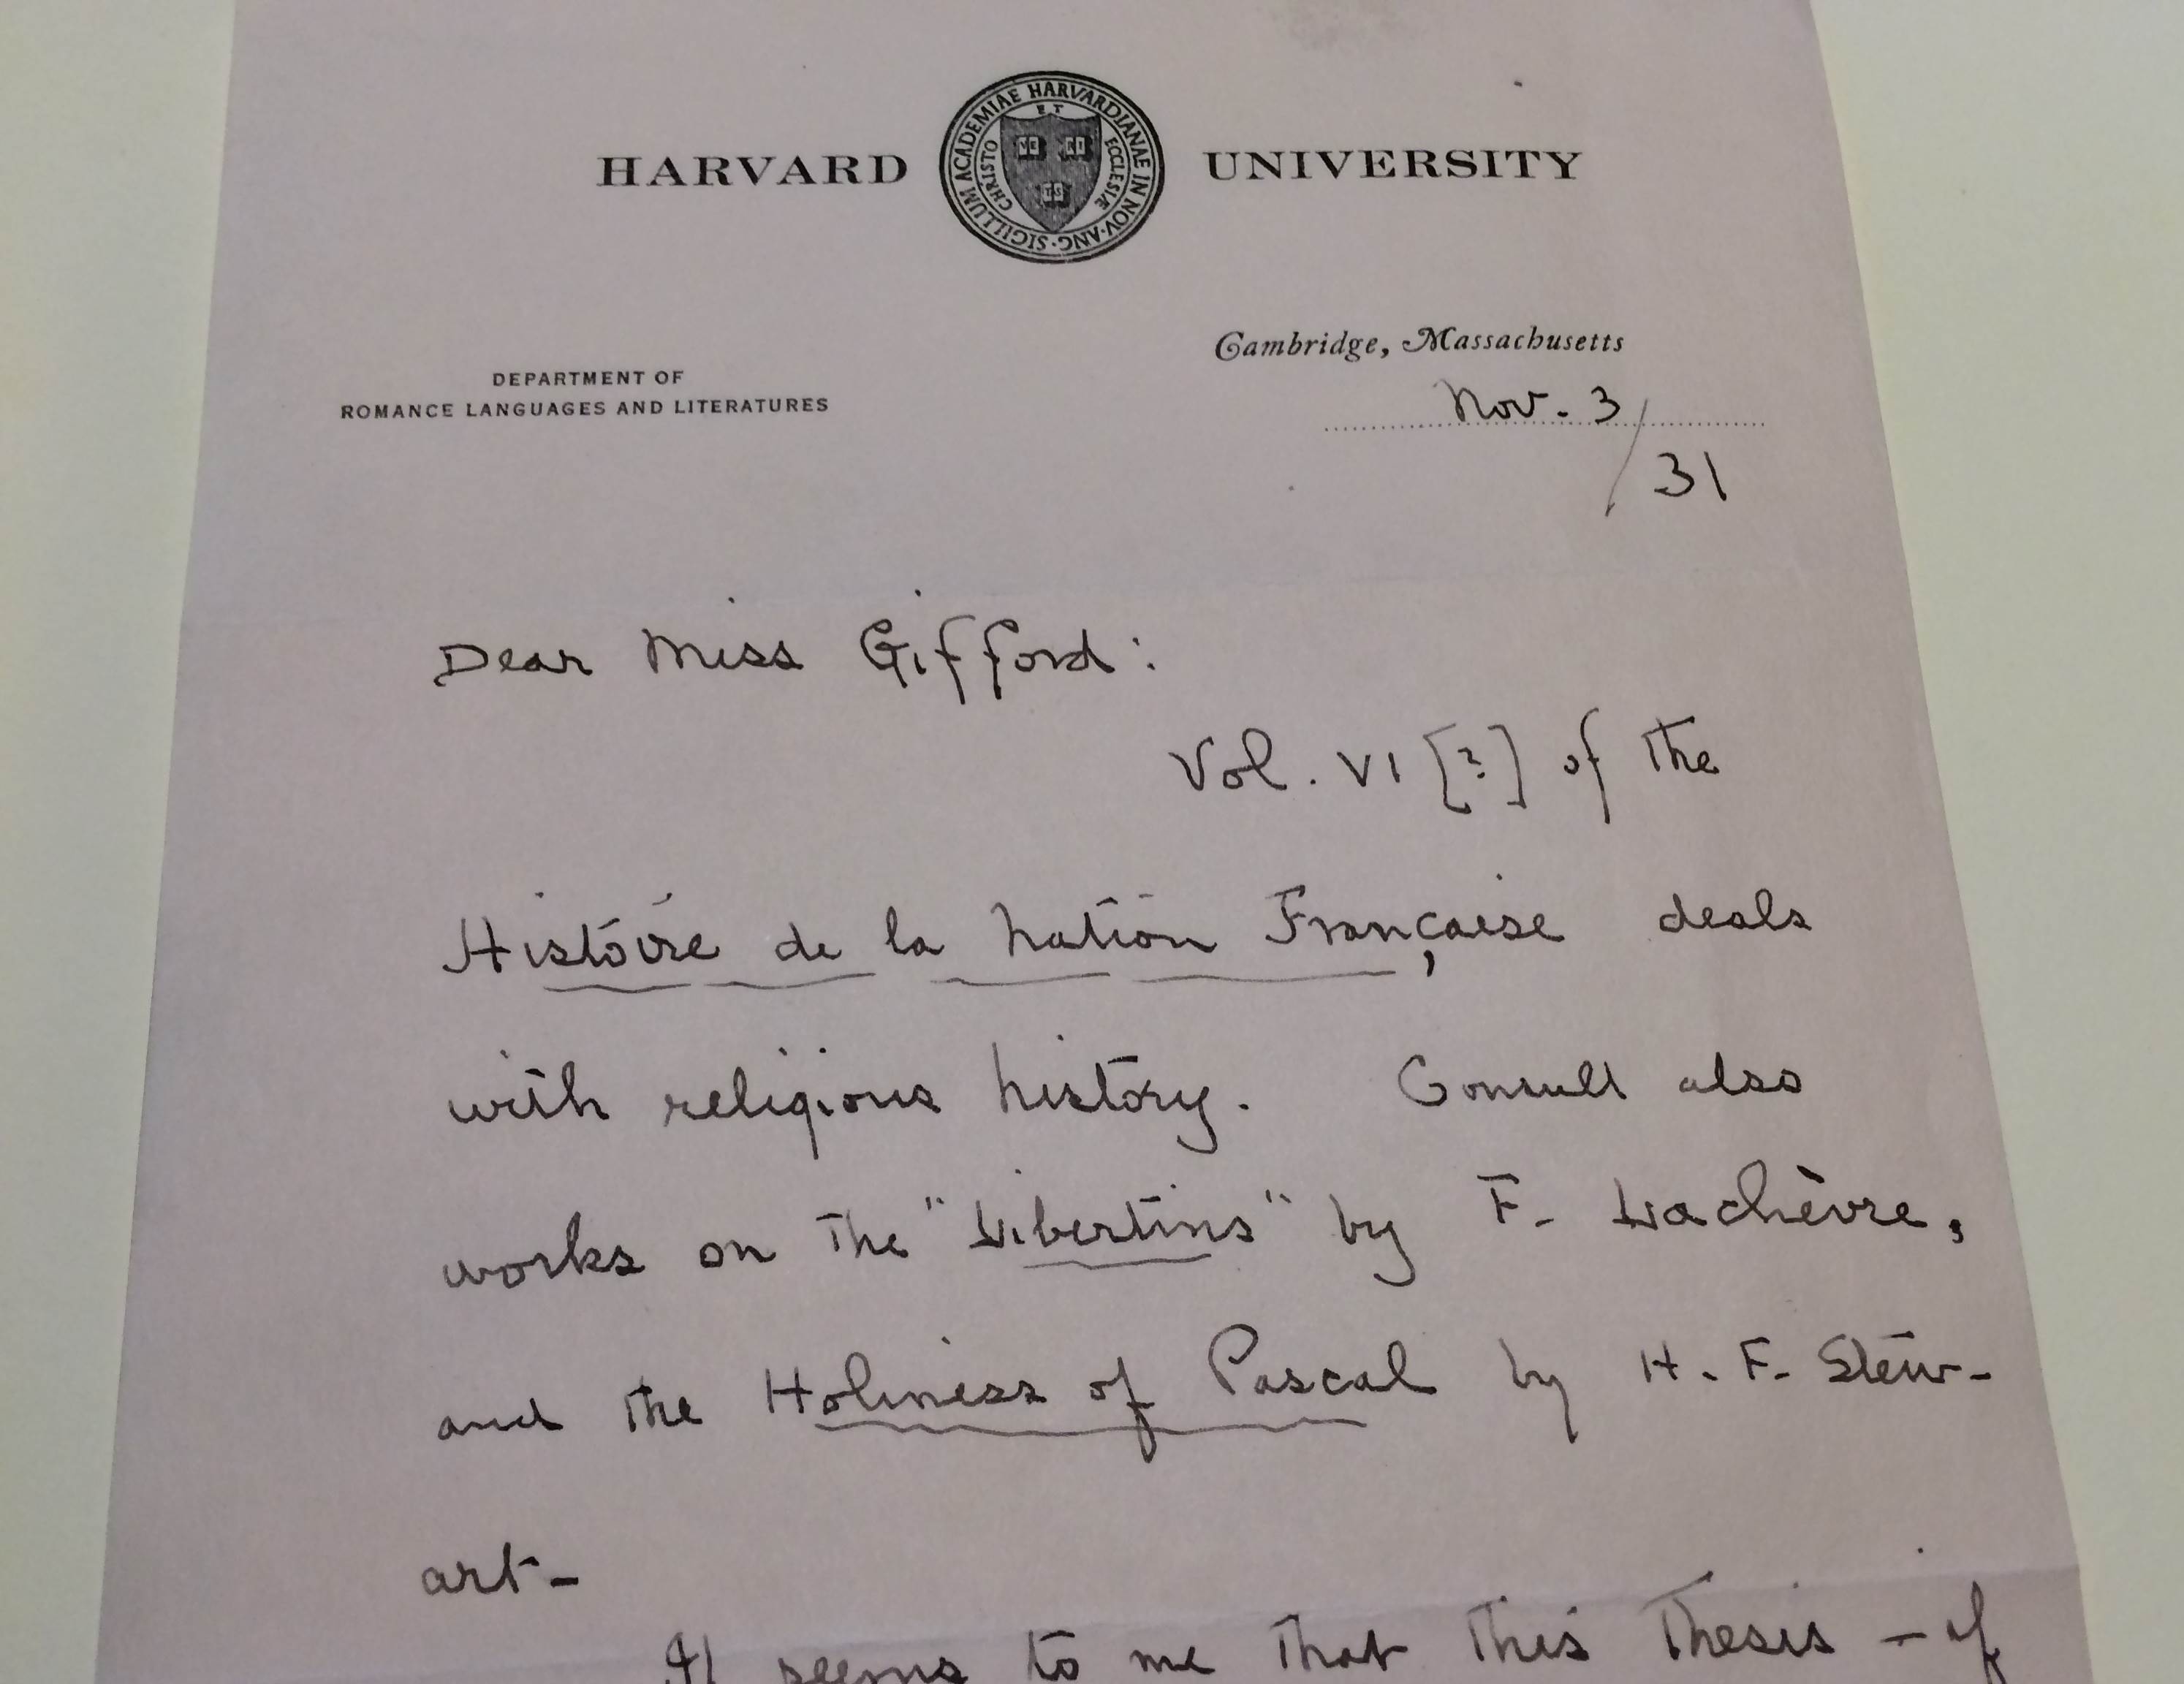 HARVARD UNIVERSITY
SIGILLUM ACADEMIAE HARVARDIANAE IN NOV·ANG·
CHRISTO ET ECCLESIÆ
VE RI TS
Cambridge, Massachusetts
DEPARTMENT OF
ROMANCE LANGUAGES AND LITERATURES
Nov. 3/31
Dear Miss Gifford:
Vol. VI [?] of the
Histoire de la nation Française deals
with religious history. Consult also
works on the "Libertins" by F. Lachèvre,
and the Holiness of Pascal by H. F. Stew-
art-
It seems to me that this thesis - if